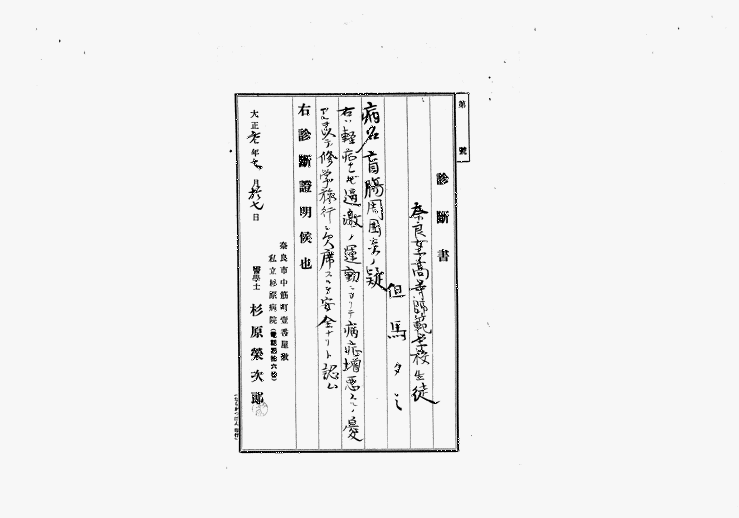 第 號
診斷書
奈良女高等師範学校生徒
但馬タミ
病名 盲腸周囲炎ノ疑
右ハ軽症ナレ共過激ノ運動ニヨリテ病症増悪スルノ憂
アルヲ以テ修学旅行ニ欠席スルヲ安全ナリト認ム
右診斷證明候也
大正 年 月 七日
奈良市中筋町壹番屋敷
私立杉原病院
醫學士 杉原榮次郎